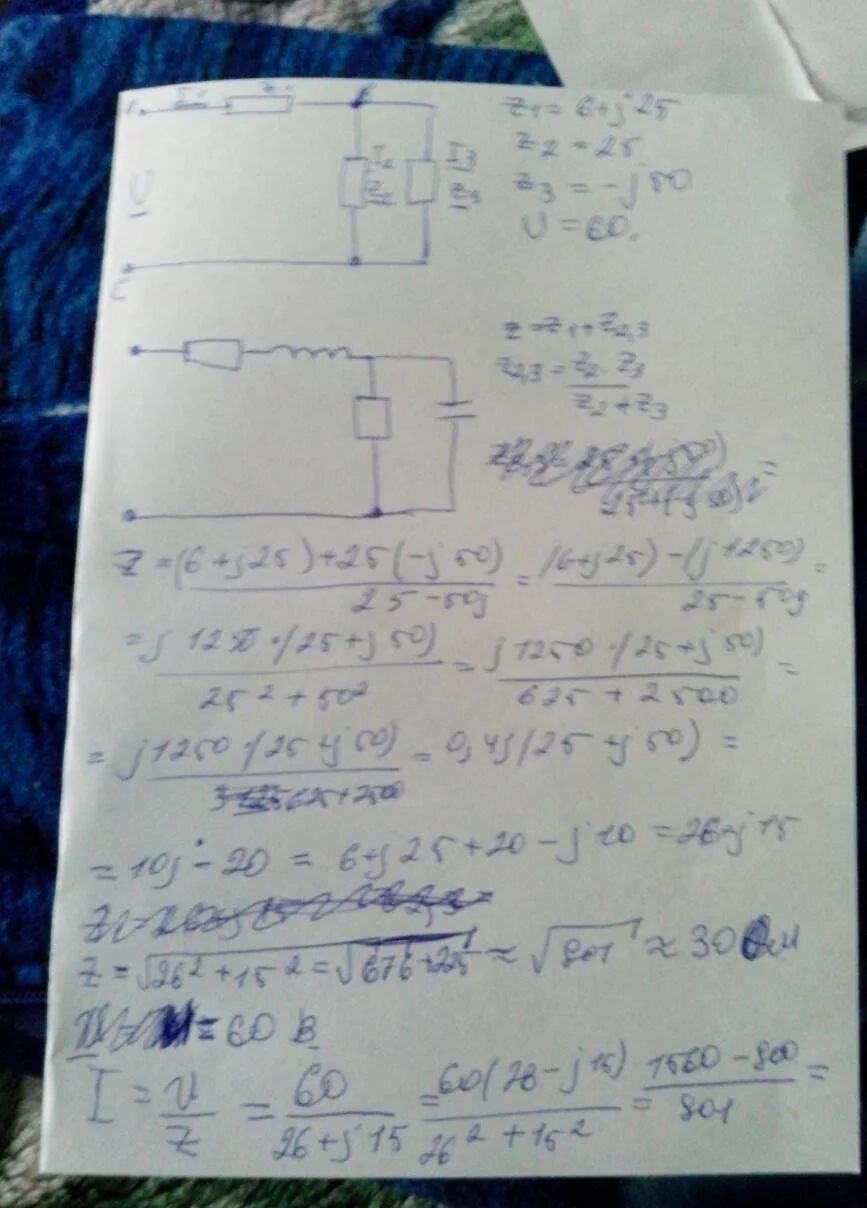 I₁ Z₁
Z₁ = 6 + j 25
Z₂ = 25
I₂ I₃
Z₂ Z₃
Z₃ = - j 50
U
U = 60.
C
Z = Z₁ + Z₂,₃
Z₂,₃ = Z₂ · Z₃ / Z₂ + Z₃
Z = (6 + j25) + 25 (- j 50) / 25 - 50j = (6 + j25) - (j 1250) / 25 - 50j =
= j 1250 · (25 + j 50) / 25² + 50² = j 1250 · (25 + j 50) / 625 + 2500 =
= j 1250 · (25 + j 50) / 625 + 2500 = 0,4j (25 + j 50) =
= 10j - 20 = 6 + j 25 + 20 - j 10 = 26 + j 15
Z = √26² + 15² = √676 + 225 ≈ √901 ≈ 30 Ом
= 60 В
I = U / Z = 60 / 26 + j 15 = 60 (26 - j 15) / 26² + 15² = 1560 - 900 / 901 =